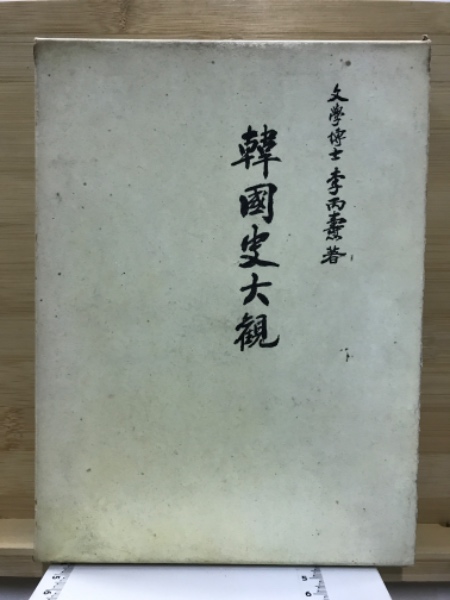 文學博士 李丙燾 著
韓國史大觀